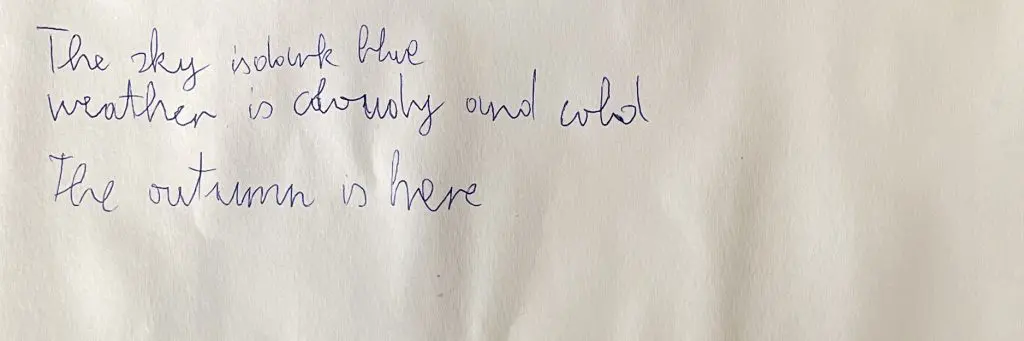 The sky is dark blue
weather is cloudy and cold
The autumn is here